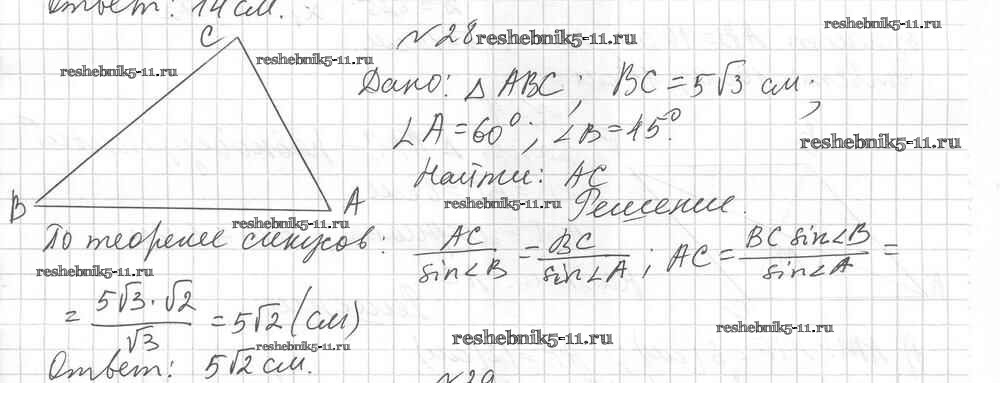 Ответ: 14 см.
reshebnik5-11.ru
C
№28 reshebnik5-11.ru
reshebnik5-11.ru
reshebnik5-11.ru
Дано: △ABC; BC = 5√3 см;
∠A = 60°; ∠B = 45°.
reshebnik5-11.ru
Найти: AC
B
A
reshebnik5-11.ru
Решение.
reshebnik5-11.ru
По теореме синусов: AC/sin∠B = BC/sin∠A; AC = BC sin∠B/sin∠A =
reshebnik5-11.ru
= 5√3·√2/√3 = 5√2 (см)
reshebnik5-11.ru
reshebnik5-11.ru
reshebnik5-11.ru
Ответ: 5√2 см.
№29